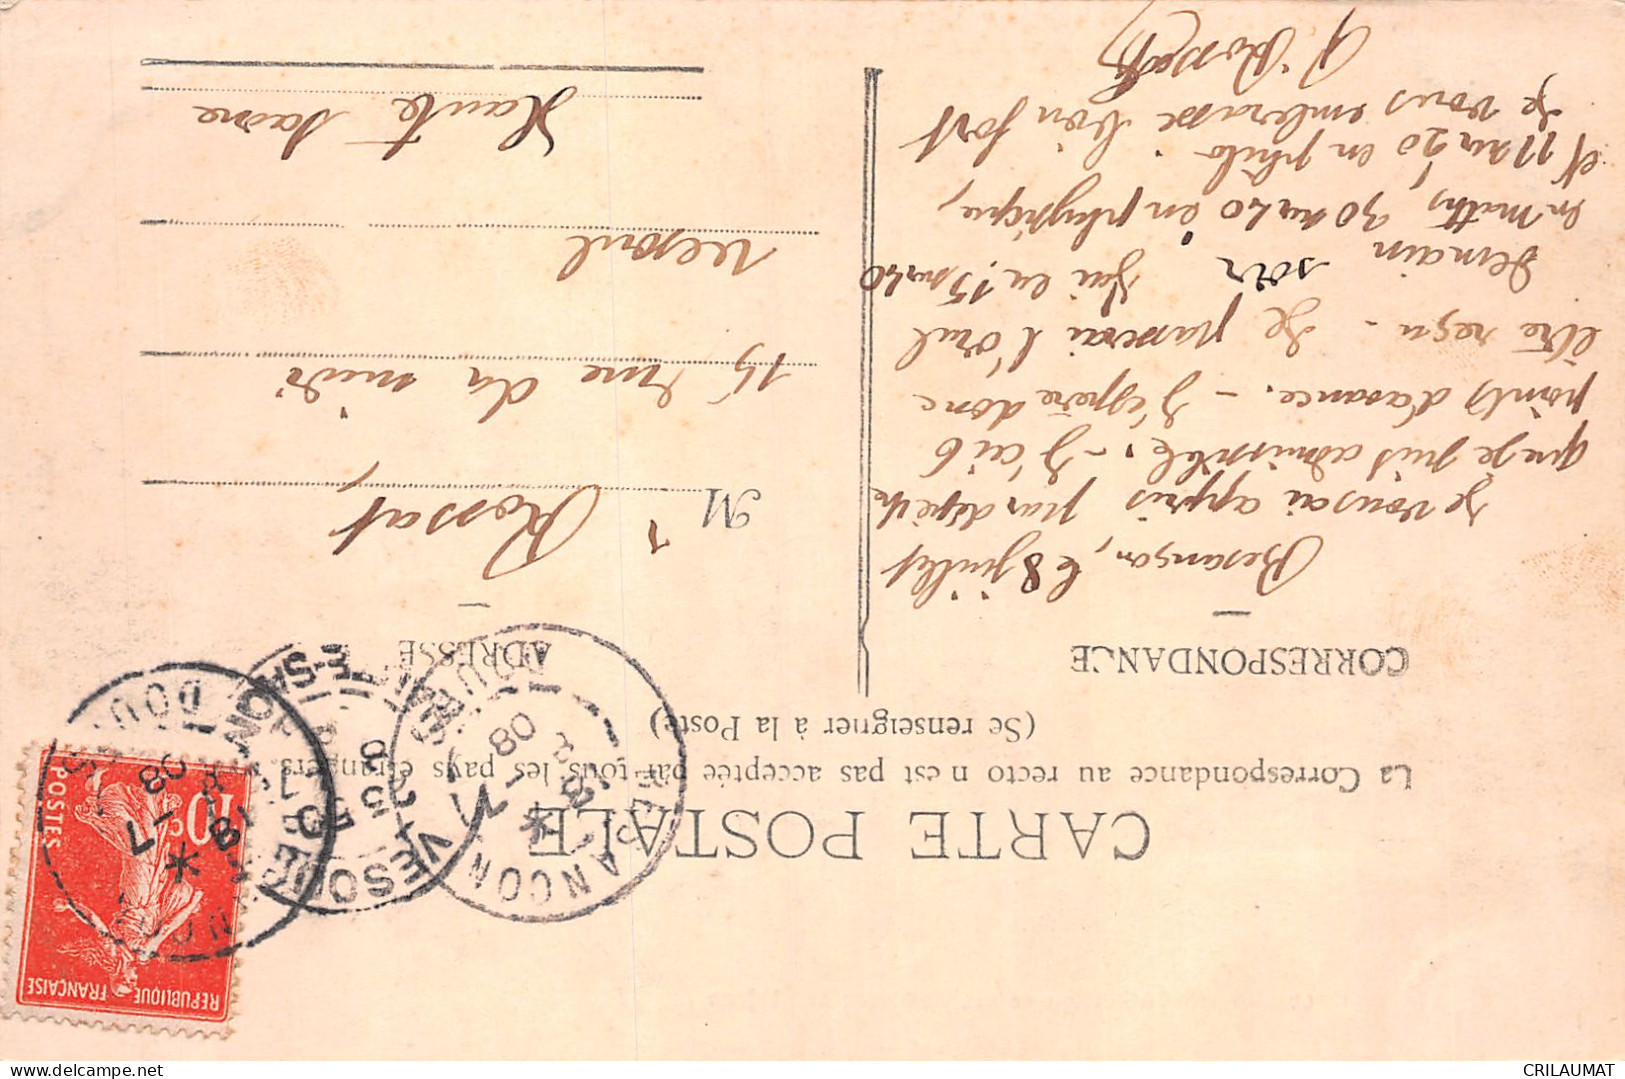 CARTE POSTALE
La Correspondance au recto n'est pas acceptée par tous les pays étrangers
(Se renseigner à la Poste)
CORRESPONDANCE
Besançon, le 8 juillet
Je vous ai appris par dépêche
que je suis admissible. - J'ai 6
points d'avance. - J'espère donc
être reçu - Je passerai l'oral
demain soir J'ai eu 15 sur 40
en Maths, 30 sur 40 en physique,
et 11 sur 20 en philo.
Je vous embrasse bien fort
Rossat
ADRESSE
Mr Rossat,
15 rue du midi
Vesoul
Haute Saone
REPUBLIQUE FRANÇAISE
POSTES
10c
BESANCON
DOUBS
8-7
08
VESOUL
HAUTE-SAONE
CRILAUMAT